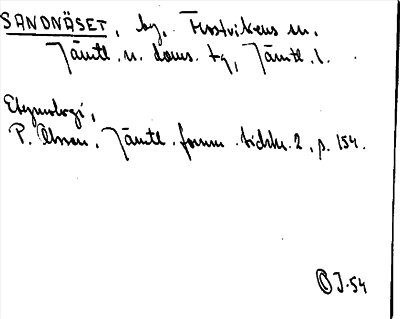 SANDNÄSET, by, Frostvikens sn.
Jämtl. n. doms. tg, Jämtl. l.
Etymologi,
P. Olsson, Jämtl. fornm. tidskr. 2, p. 154.
J.54